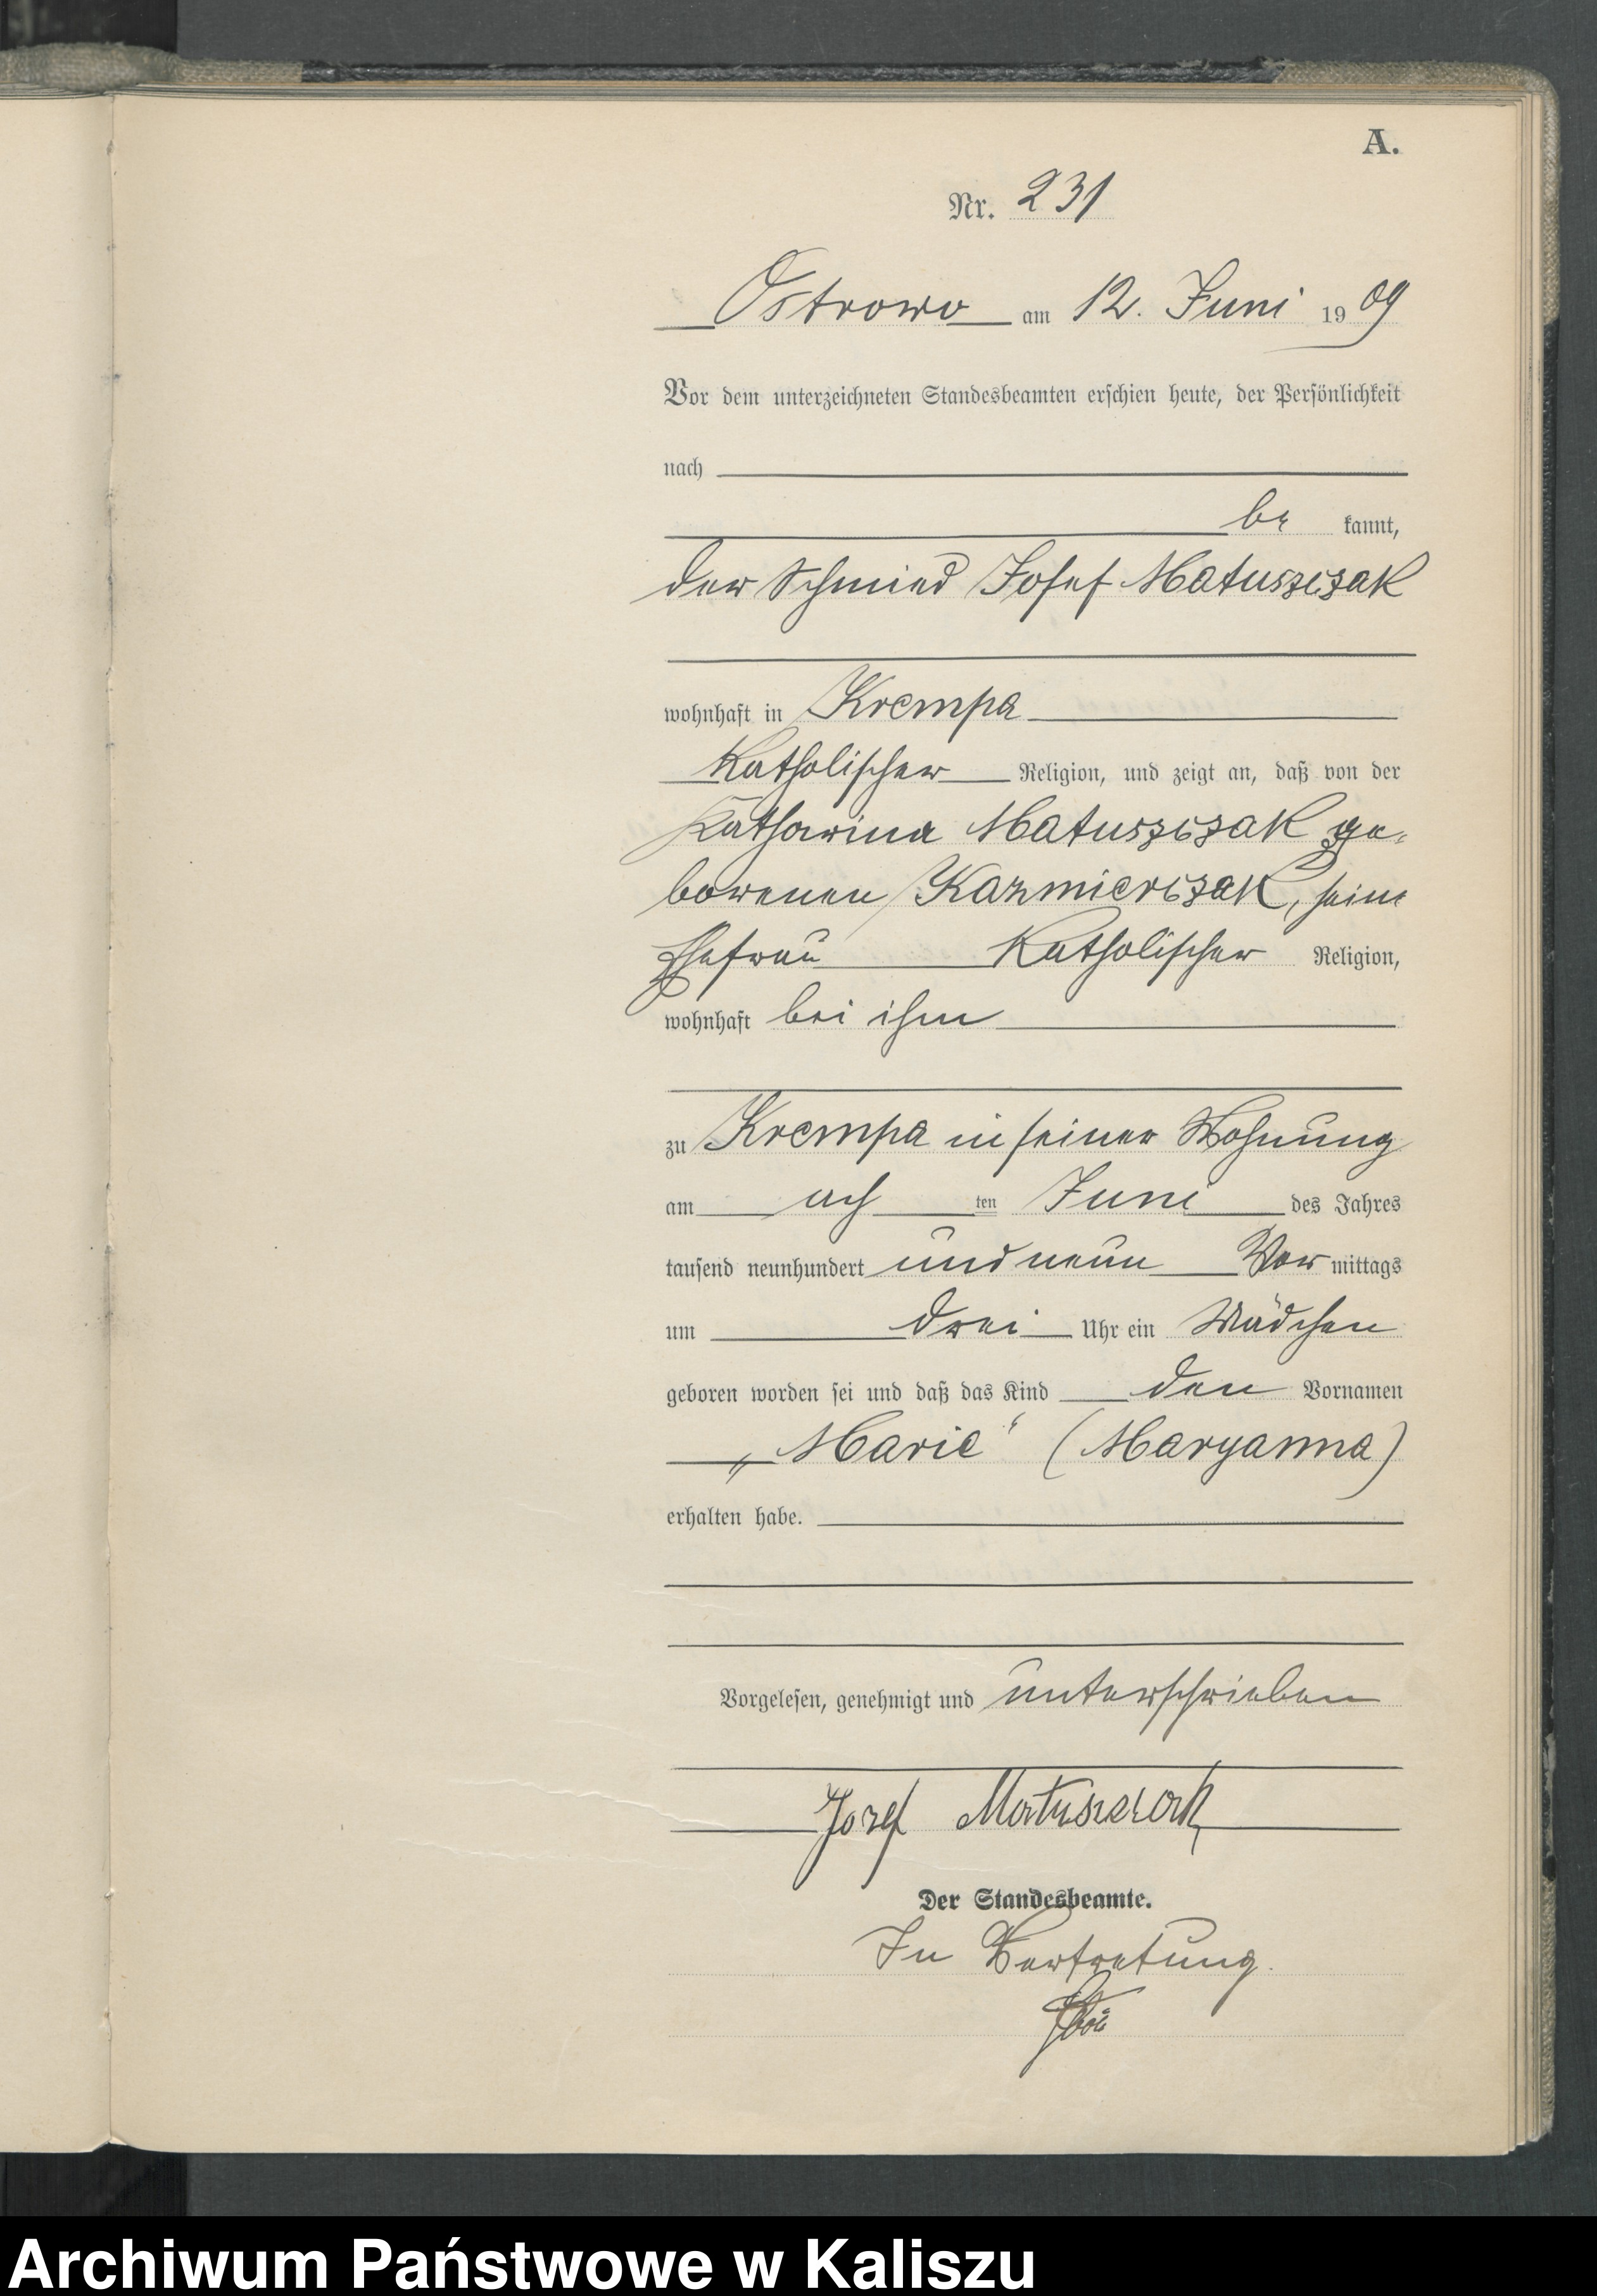 A.
Nr. 231
Ostrowo am 12. Juni 1909
Vor dem unterzeichneten Standesbeamten erschien heute, der Persönlichkeit
nach
be kannt,
der Schmied Josef Matuszczak
wohnhaft in Krempa
Katholischer Religion, und zeigt an, daß von der
Katharina Matuszczak ge-
borenen Kazmierczak, seine
Ehefrau Katholischer Religion,
wohnhaft bei ihm
zu Krempa in seiner Wohnung
am ach ten Juni des Jahres
tausend neunhundert und neun Vor mittags
um drei Uhr ein Mädchen
geboren worden sei und daß das Kind den Vornamen
„Marie“ (Maryanna)
erhalten habe.
Vorgelesen, genehmigt und unterschrieben
Jozef Matuszczak
Der Standesbeamte.
In Vertretung.
Archiwum Państwowe w Kaliszu